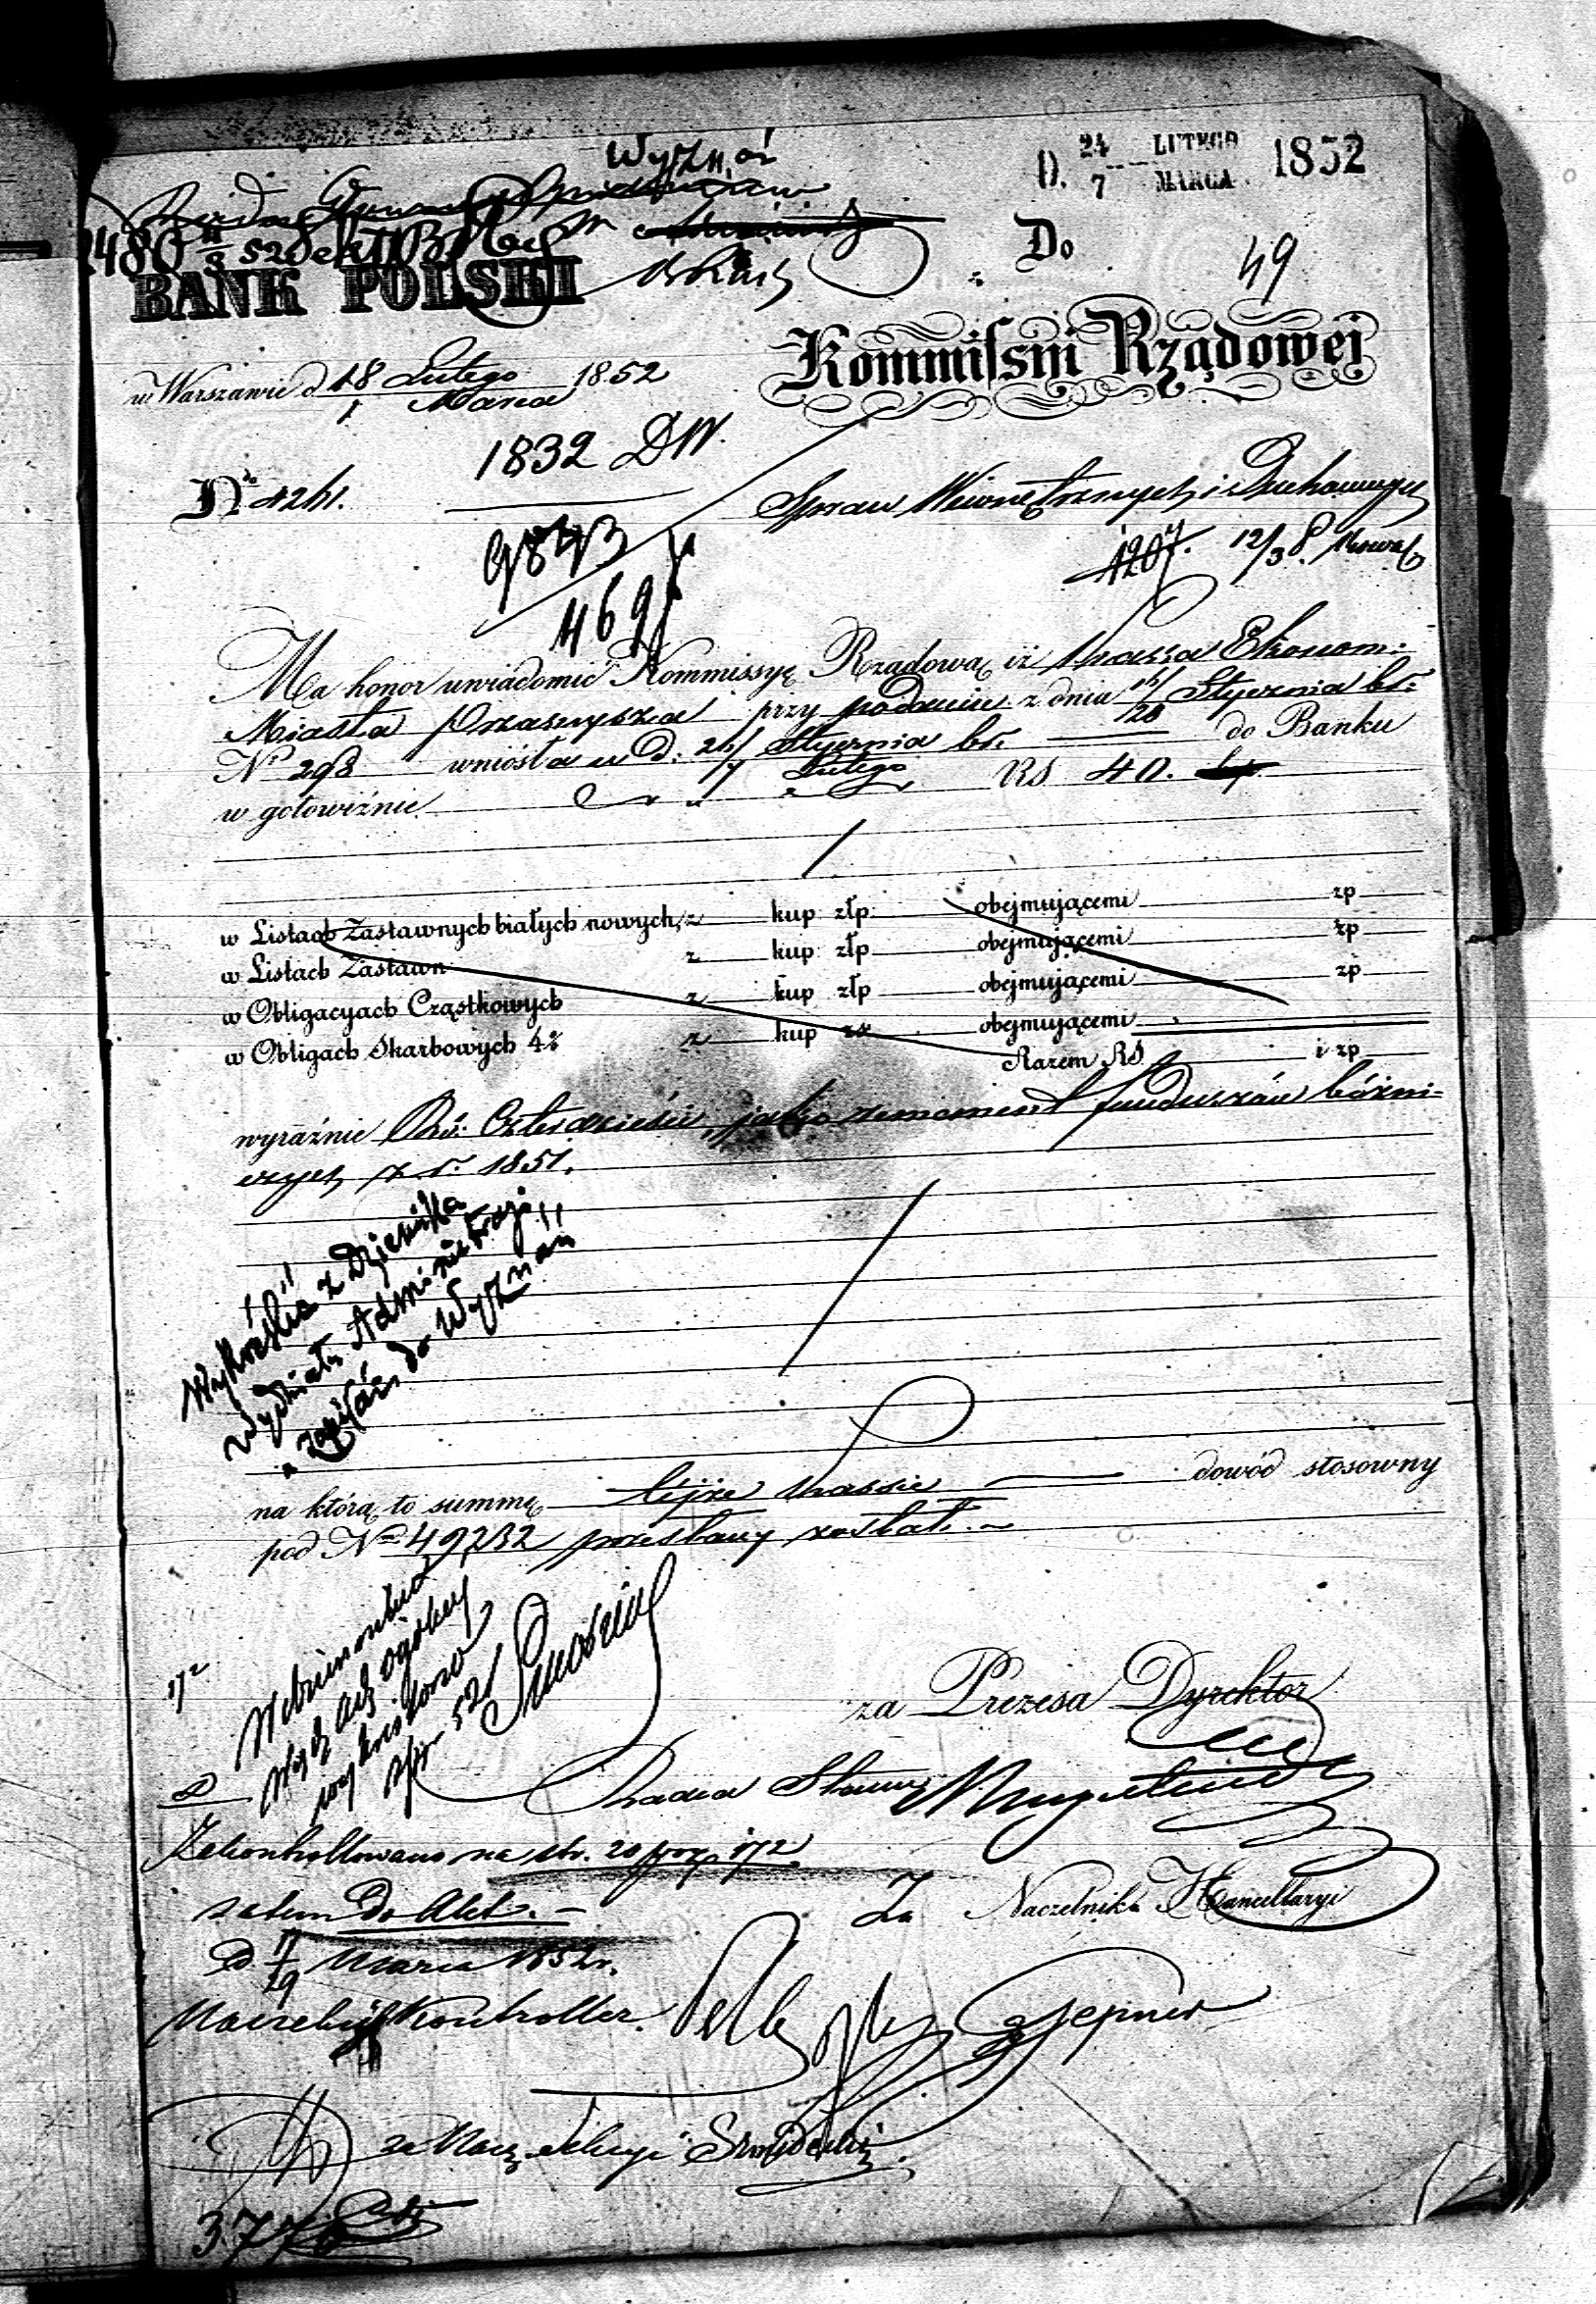 Wyznań
D. 24/7 LUTEGO MARCA 1852
2480
BANK POLSKI
Do
49
Kommissyi Rządowej
w Warszawie d. 18/1 Lutego Marca 1852
1832 DW.
No 4261.
Spraw Wewnętrznych i Duchownych
9843
1207. 12/3
469
Ma honor uwiadomić Kommissyę Rządową iż Kassa Ekonom:
Miasta Przasnysza przy podaniu z dnia 16/28 Stycznia br.
No 298 wniosła w d. 26/7 Stycznia Lutego br. do Banku
w gotowiźnie RS 40.
w Listach Zastawnych białych nowych z kup złp. obejmującemi zp
w Listach Zastawn z kup złp obejmującemi zp
w Obligacyach Cząstkowych z kup złp obejmującemi zp
w Obligach Skarbowych 4% z kup obejmującemi
Razem RS i zp
wyraźnie Rs: Czterdzieści, jako remanent funduszów bóżni-
cznych z r. 1851.
Wykréślić z Dziennika
Wydziału Administracji
a zapisać do Wyznań
na którą to summę tejże Kassie dowód stosowny
pod No 49232 przesłany został.
172
za Prezesa Dyrektor
Radca Stanu
Zakontrollowano na str. 20 poz. 172
zatem Do Akt.
D. 17/29 Marca 1852 r.
Za Naczelnika Kancellaryi
Naczelny Kontroller.
za Nacz. Sekcyi
377